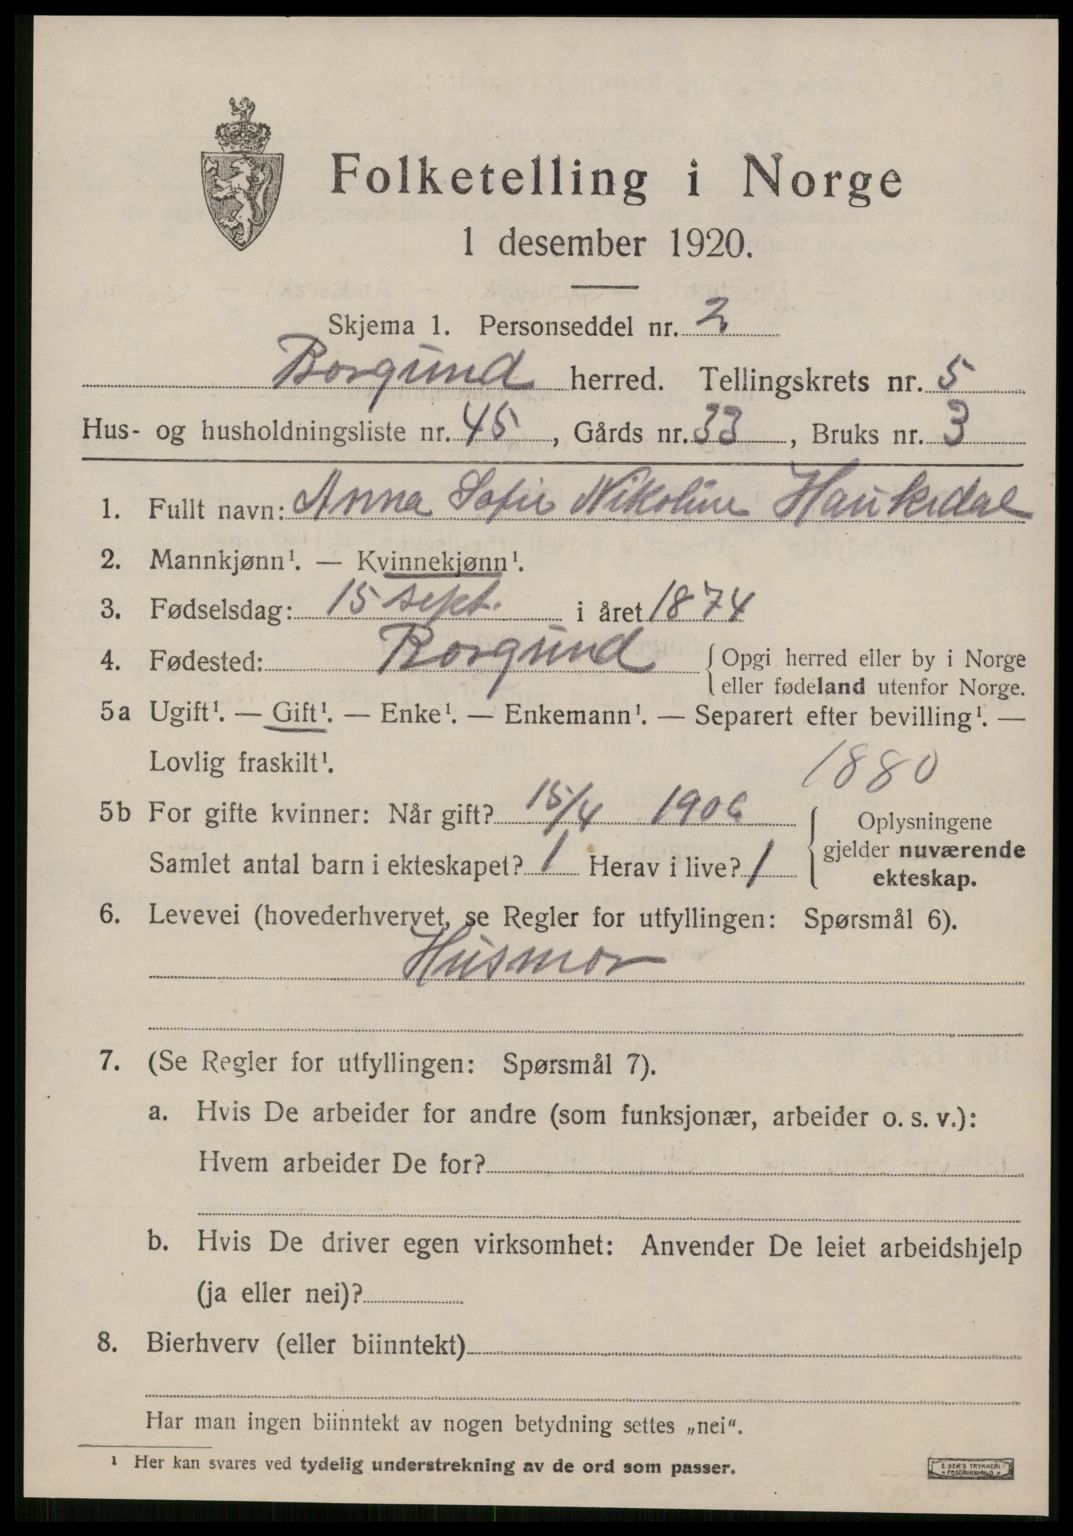 Folketelling i Norge
1 desember 1920.
Skjema 1. Personseddel nr. 2
Borgund herred. Tellingskrets nr. 5
Hus- og husholdningsliste nr. 45, Gårds nr. 33, Bruks nr. 3
1. Fullt navn: Anna Sofie Nikoline Haukedal
2. Mannkjønn¹. — Kvinnekjønn¹.
3. Fødselsdag: 15 sept. i året 1874
4. Fødested: Borgund {Opgi herred eller by i Norge
eller fødeland utenfor Norge.
5a Ugift¹. — Gift¹. — Enke¹. — Enkemann¹. — Separert efter bevilling¹. —
Lovlig fraskilt¹.
1880
5b For gifte kvinner: Når gift? 15/4 1906
Samlet antal barn i ekteskapet? 1 Herav i live? 1
{Oplysningene
gjelder nuværende
ekteskap.
6. Levevei (hovederhvervet, se Regler for utfyllingen: Spørsmål 6).
Husmor
7. (Se Regler for utfyllingen: Spørsmål 7).
a. Hvis De arbeider for andre (som funksjonær, arbeider o. s. v.):
Hvem arbeider De for?
b. Hvis De driver egen virksomhet: Anvender De leiet arbeidshjelp
(ja eller nei)?
8. Bierhverv (eller biinntekt)
Har man ingen biinntekt av nogen betydning settes „nei“.
¹ Her kan svares ved tydelig understrekning av de ord som passer.
E. SEM'S TRYKKERI
FREDRIKSHALD